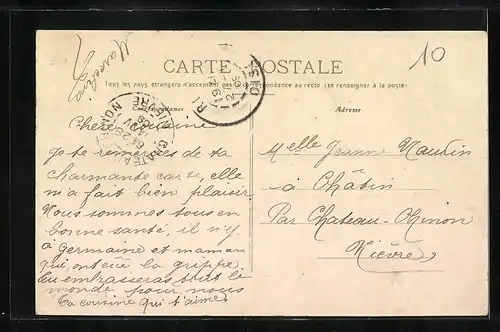 10
CARTE POSTALE
Tous les pays étrangers n'acceptent pas la correspondance au recto (se renseigner à la poste)
Correspondance
Adresse
Chere Cousine
je te remercies de ta
charmante carte, elle
m'a fait bien plaisir
Nous sommes tous en
bonne santé, il n'y
a Germaine et maman
qui ont eu la grippe
Tu embrasseras tout le
monde pour nous
Ta cousine qui t'aime
Melle Jeanne Naudin
à Châtin
Par Chateau-Chinon
Nièvre